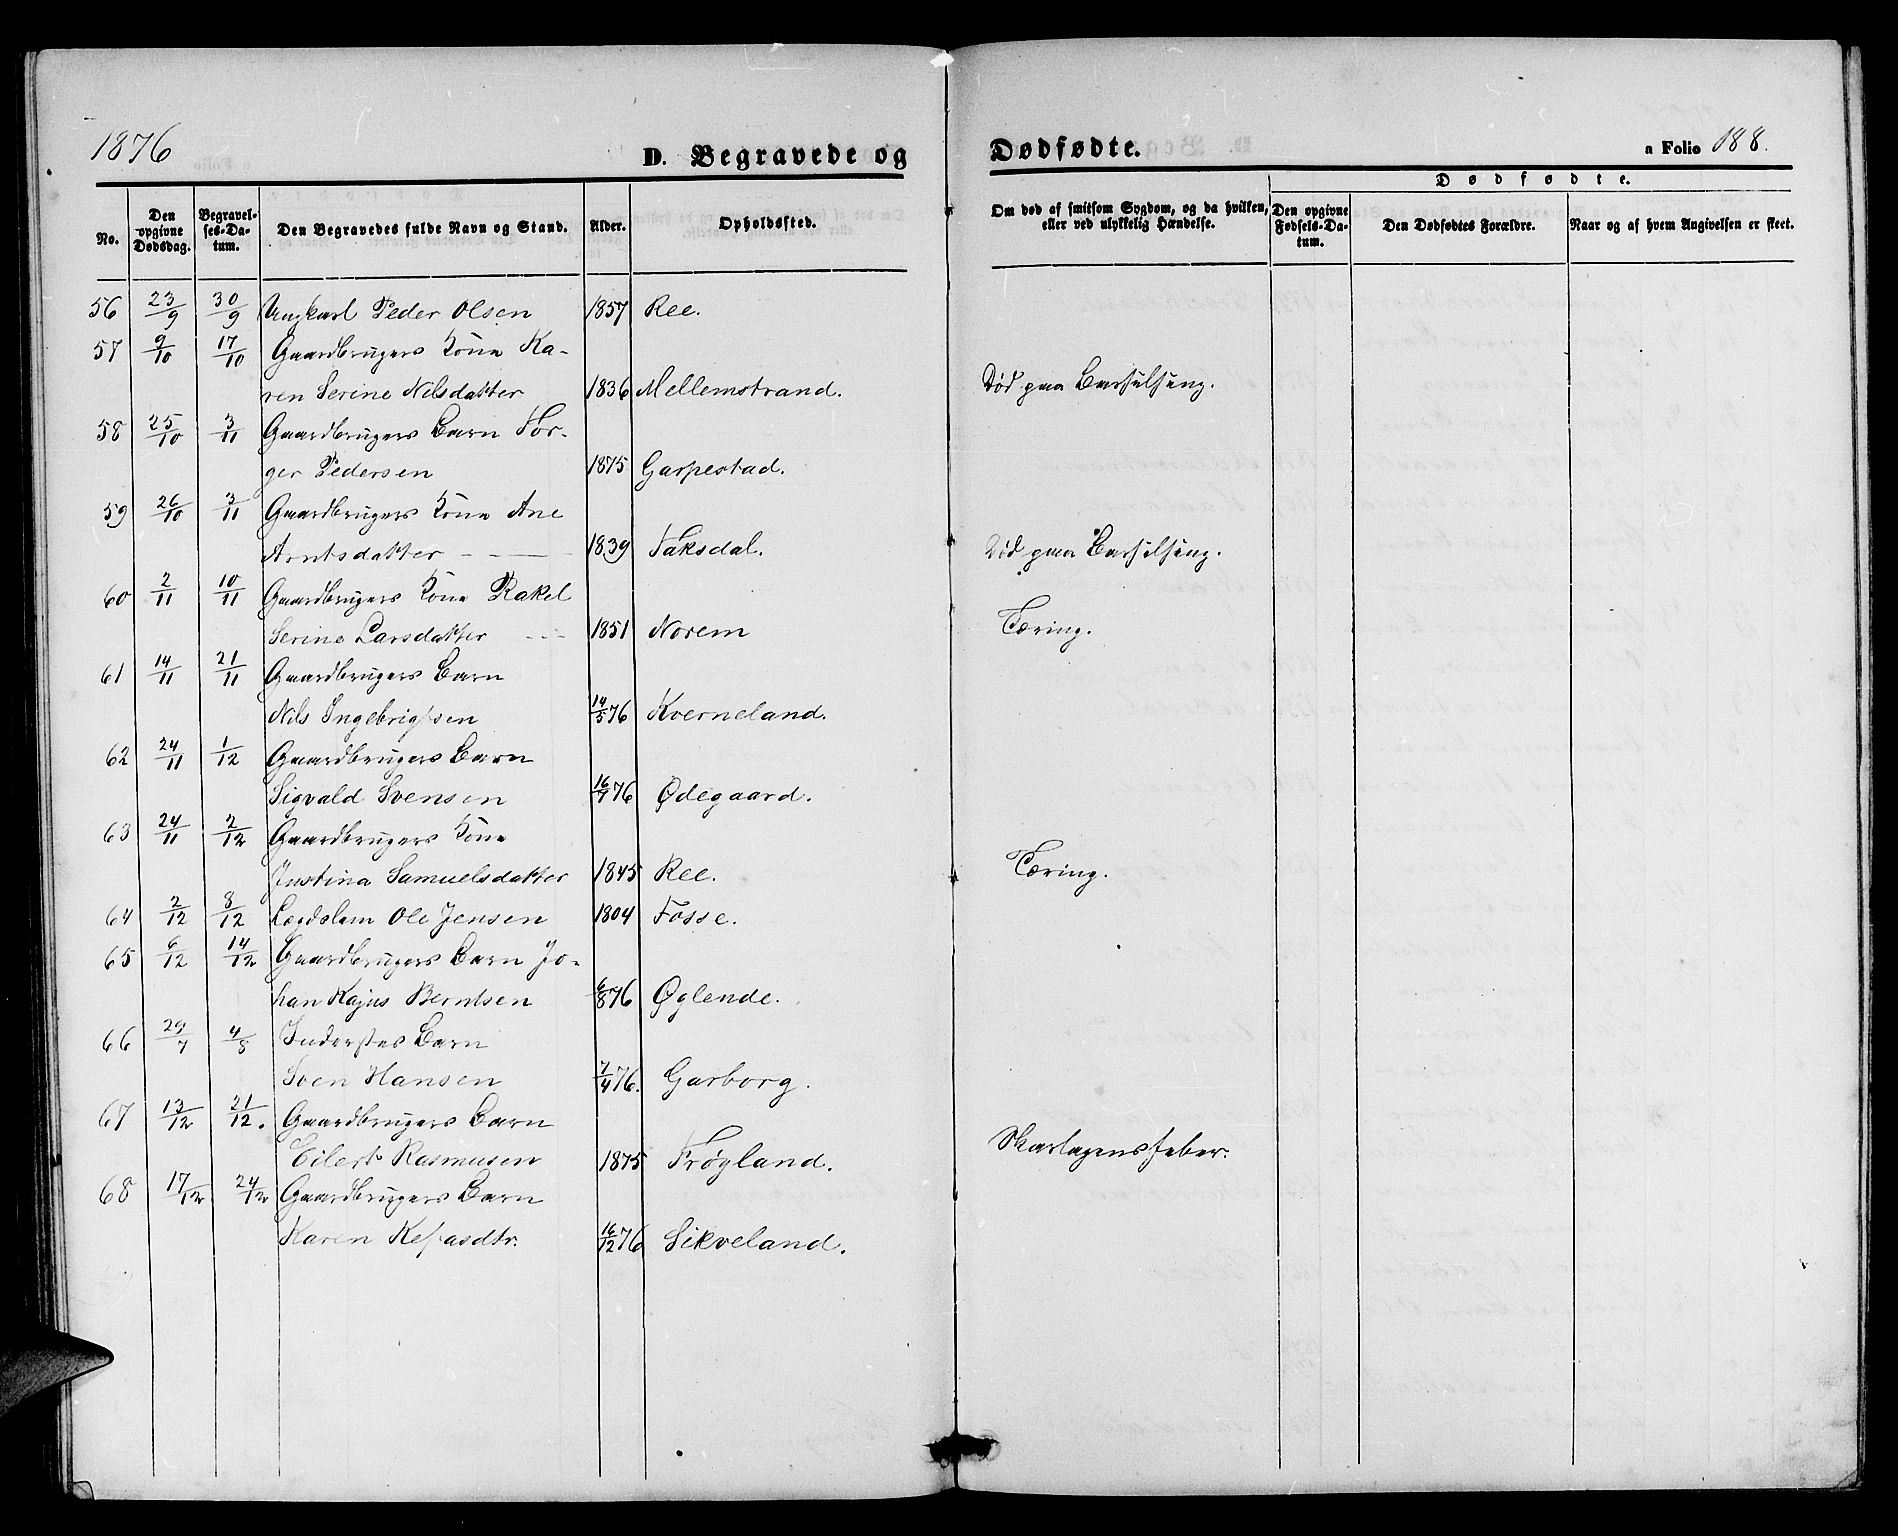 1876
D. Begravede og
Dødfødte.
a Folio 188.
No.
Den opgivne Dødsdag.
Begravelses-Datum.
Den Begravedes fulde Navn og Stand.
Alder.
Opholdssted.
Om død af smitsom Sygdom, og da hvilken, eller ved ulykkelig Hændelse.
Dødfødte.
Den opgivne Fødsels-Datum.
Den Dødfødtes Forældre.
Naar og af hvem Angivelsen er skeet.
56 23/9 30/9 Ungkarl Peder Olsen 1857 Ree.
57 9/10 17/10 Gaardbrugers Kone Ka-
ren Serine Nilsdatter 1836 Mellemstrand. Død paa Barselseng.
58 25/10 3/11 Gaardbrugers Barn Tor-
ger Pedersen 1875 Garpestad.
59 26/10 3/11 Gaardbrugers Kone Ane
Arntsdatter 1839 Taksdal. Død paa Barselseng.
60 2/11 10/11 Gaardbrugers Kone Rakel
Serine Larsdatter 1851 Norem Tæring.
61 14/11 21/11 Gaardbrugers Barn
Nils Ingebrigtsen 14/5 76 Kverneland.
62 24/11 1/12 Gaardbrugers Barn
Sigvald Svensen 16/7 76 Ødegaard.
63 24/11 2/12 Gaardbrugers Kone
Justina Samuelsdatter 1845 Ree. Tæring.
64 2/12 8/12 Lægdslem Ole Jensen 1804 Fosse.
65 6/12 14/12 Gaardbrugers Barn Jo-
han Kajus Berntsen 6/8 76 Øglende.
66 29/7 4/8 Inderstes Barn
Sven Hansen 7/4 76. Garborg.
67 13/12 21/12. Gaardbrugers Barn
Eilert Rasmusen 1875 Frøyland. Skarlagensfeber.
68 17/12 24/12 Gaardbrugers Barn
Karen Kefasdtr. 16/12 76 Sikveland.